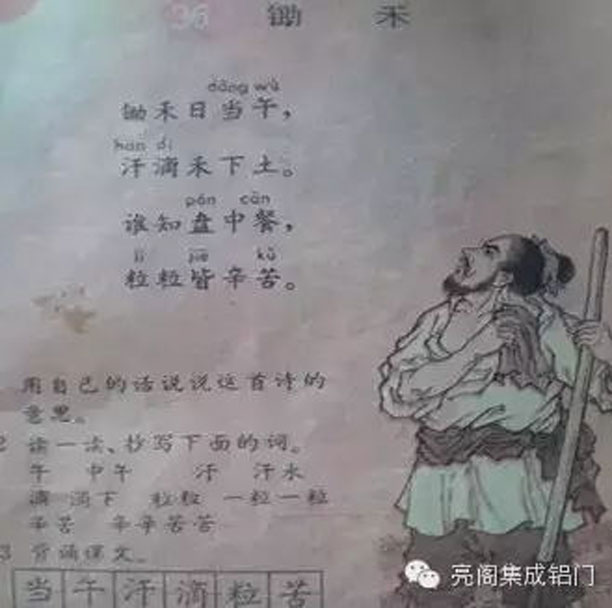 36 锄禾
dāng wǔ
锄禾日当午，
hàn dī
汗滴禾下土。
pán cān
谁知盘中餐，
lì jiē kǔ
粒粒皆辛苦。
用自己的话说说这首诗的
意思。
2 读一读、抄写下面的词。
午 中午 汗 汗水
滴 滴下 粒粒 一粒一粒
辛苦 辛辛苦苦
3 背诵课文。
当午汗滴粒苦
亮阁集成铝门